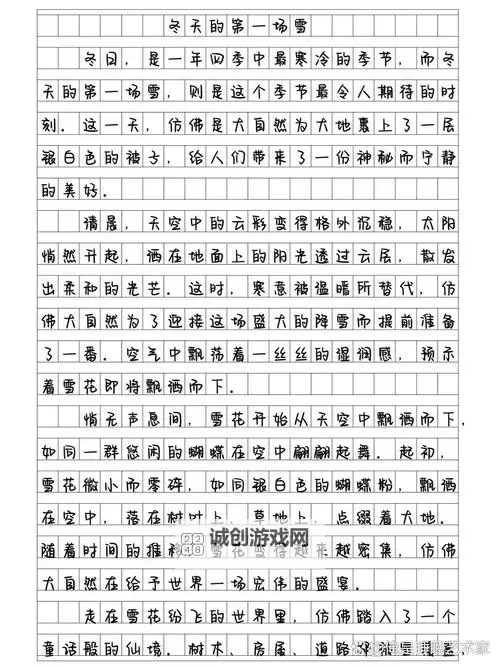 冬天的第一场雪
冬日，是一年四季中最寒冷的季节，而冬
天的第一场雪，则是这个季节最令人期待的时
刻．这一天，仿佛是大自然为大地裹上了一层
银白色的被子，给人们带来了一份神秘而宁静
的美好．
清晨，天空中的云彩变得格外沉稳，太阳
悄然升起，洒在地面上的阳光透过云层，散发
出柔和的光芒．这时，寒意被温暖所替代，仿
佛大自然为了迎接这场盛大的降雪而提前准备
了一番．空气中飘荡着一丝丝的湿润感，预示
着雪花即将飘洒而下．
悄无声息间，雪花开始从天空中飘洒而下，
如同一群悠闲的蝴蝶在空中翩翩起舞．起初，
雪花微小而零碎，如同银白色的蝴蝶粉，飘洒
在空中，落在树叶上、草地上，点缀着大地．
2248 诚创游戏网
随着时间的推移，雪花变得越来越密集，仿佛
大自然在给予世界一场宏伟的盛宴．
走在雪花纷飞的世界里，仿佛踏入了一个
童话般的仙境．树木、房屋、道路